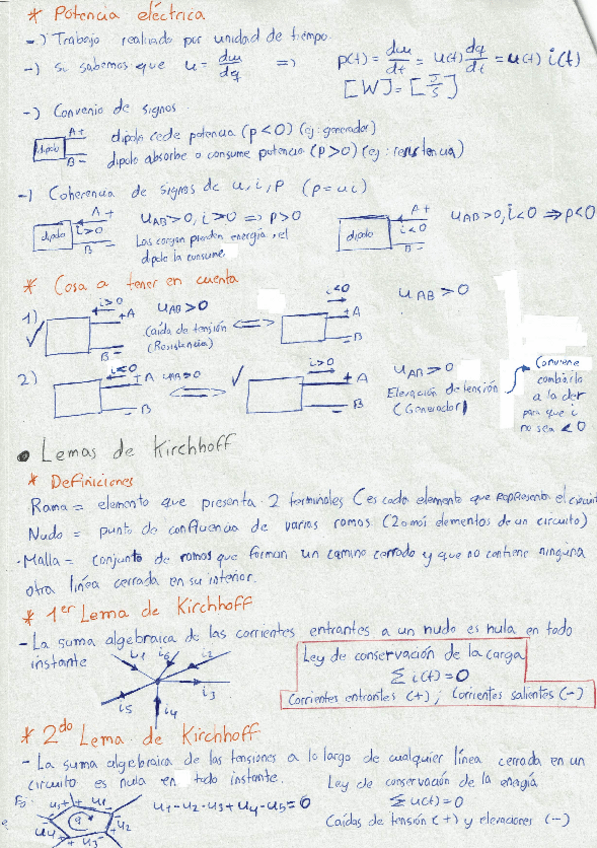 * Potencia eléctrica
-) Trabajo realizado por unidad de tiempo.
-) si sabemos que u = dw/dq => p(t) = dw/dt = u(t) dq/dt = u(t) i(t)
[W] = [J/S]
-) Convenio de signos
dipolo A+ B-
dipolo cede potencia (p<0) (ej: generador)
dipolo absorbe o consume potencia (p>0) (ej: resistencia)
-) Coherencia de signos de u, i, p (p=ui)
dipolo A+ i>0 B- uAB>0, i>0 => p>0 dipolo A+ i<0 B- uAB>0, i<0 => p<0
Las cargas pierden energía, el
dipolo la consume
* Cosa a tener en cuenta
1) i>0 +A B- uAB>0 i<0 +A B- uAB>0
Caída de tensión <=>
(Resistencia)
2) i<0 +A -B uAB>0 <=> i>0 +A -B uAB>0
Elevación de tensión
(Generador)
Conviene
cambiarlo
a la der
para que i
no sea <0
• Lemas de Kirchhoff
* Definiciones
Rama = elemento que presenta 2 terminales (es cada elemento que representa el circuito
Nudo = punto de confluencia de varias ramas (2 o más elementos de un circuito)
·Malla = conjunto de ramas que forman un camino cerrado y que no contiene ninguna
otra línea cerrada en su interior.
* 1er Lema de Kirchhoff
- La suma algebraica de las corrientes entrantes a un nudo es nula en todo
instante
i1 i6 i2 i3 i5 i4
Ley de conservación de la carga
∑ i(t) = 0
Corrientes entrantes (+) ; Corrientes salientes (-)
* 2do Lema de Kirchhoff
- La suma algebraica de las tensiones a lo largo de cualquier línea cerrada en un
circuito es nula en todo instante. Ley de conservación de la energía
u1-u2-u3+u4-u5=0 ∑ u(t) = 0
u4 u3 u2
Caídas de tensión (+) y elevaciones (-)